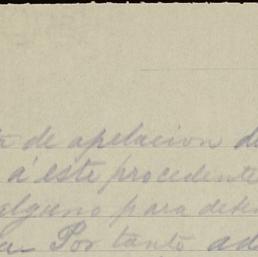 de apelacion de
á este procedente
alguno para deten
Por tanto ad